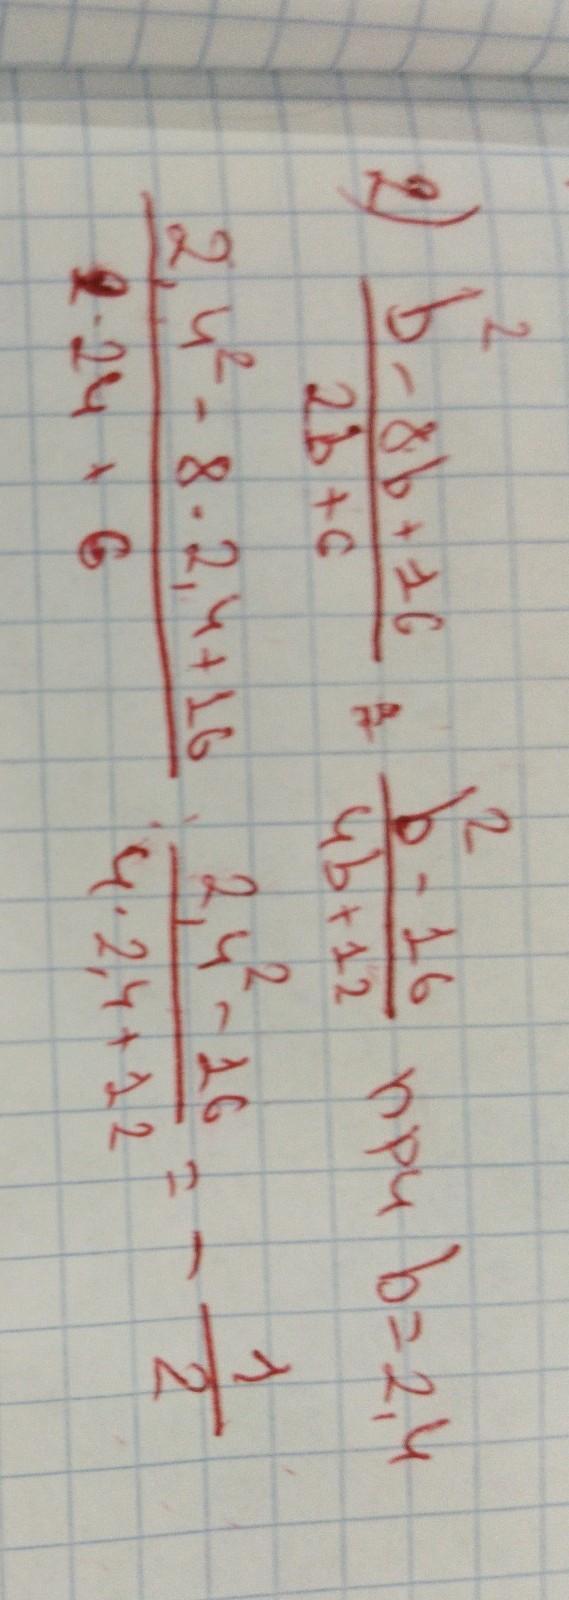 2) (b² - 8b + 16)/(2b + 6) : (b² - 16)/(4b + 12) при b = 2,4
(2,4² - 8 · 2,4 + 16)/(2 · 24 + 6) : (2,4² - 16)/(4 · 2,4 + 12) = - 1/2